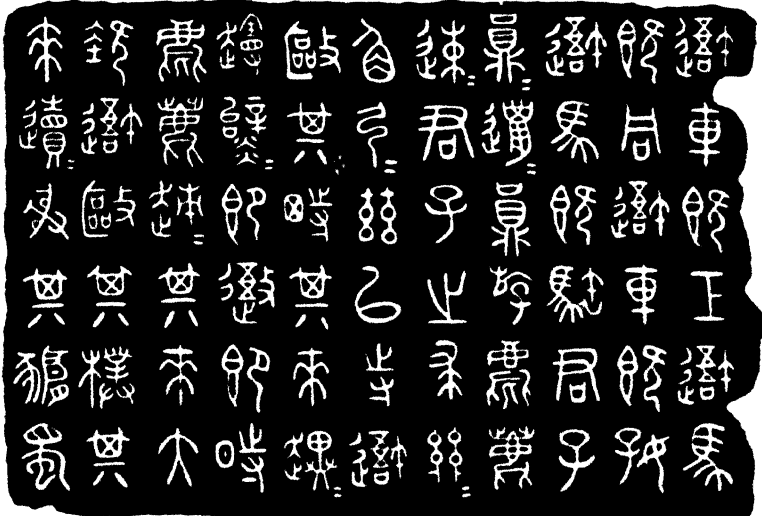 吾車既工吾馬
既同吾車既好
吾馬既騊君子
員=邋=員斿麀鹿
速=君子之求
角弓=茲以寺吾
毆其特其來趩=
炱=即御即時
麀鹿趚=其來大
次吾毆其樸其
來遺=射其豜蜀